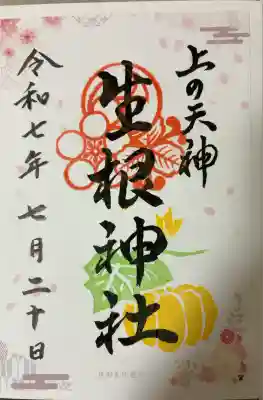 上の天神
生根神社
令和七年 七月二十日